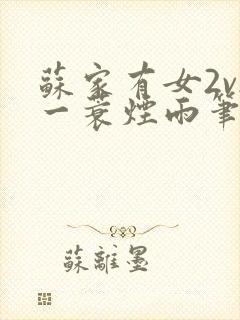 蘇家有女2v
一蓑煙雨筆
蘇離墨